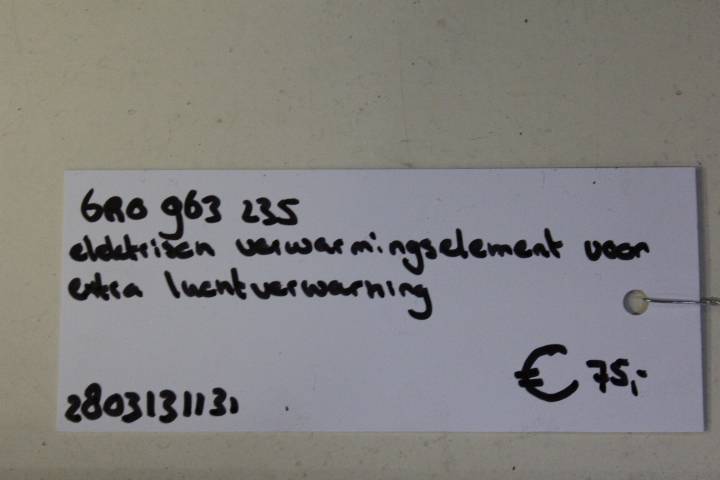 6R0 963 235
elektrisch verwarmingselement voor
extra luchtverwarming
2803131131
€ 75,-